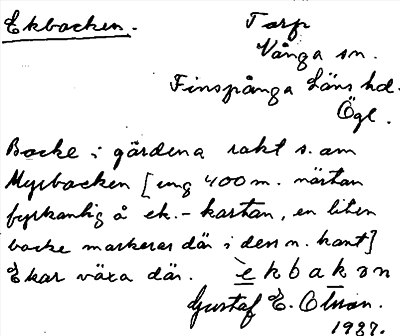 Ekbacken.
Torp
Vånga sn.
Finspånga Läns hd.
Ögl.
Backe i gärdena rakt s. om
Myrbacken [ung 400 m. nästan
fyrkantig å ek.-kartan, en liten
backe markerar där i dess n. kant]
Ekar växa där. èkbakən
Gustaf E. Olsson.
1937.